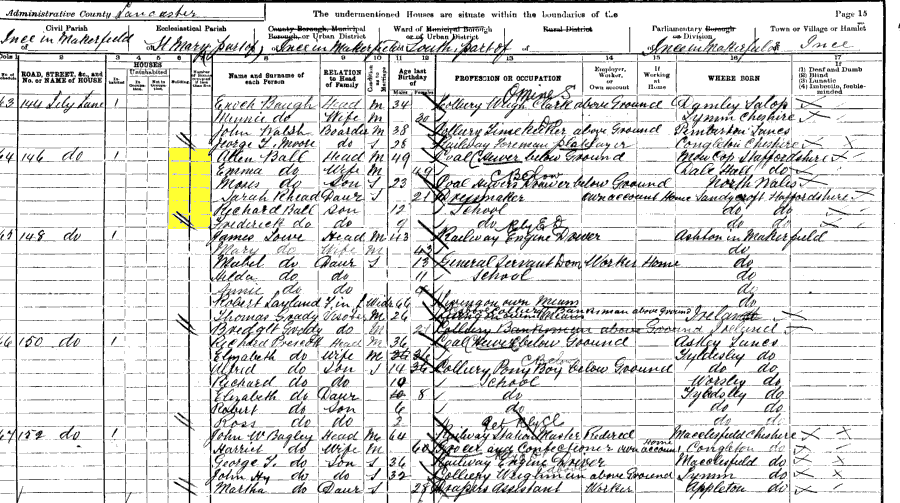 Administrative County Lancaster The undermentioned Houses are situate within the boundaries of the Page 15
Civil Parish Ecclesiastical Parish County Borough, Municipal Borough, or Urban District Ward of Municipal Borough or of Urban District Rural District Parliamentary Borough or Division Town or Village or Hamlet
of Ince in Makerfield of St Mary part of of Ince in Makerfield of South part of of of Ince in Makerfield of Ince
2 3 4 5 6 7 8 9 10 11 12 13 14 15 16 17
ROAD, STREET, &c., and No. or NAME of HOUSE HOUSES Inhabited Uninhabited In Occupation Not in Occupation Building Name and Surname of each Person RELATION to Head of Family Age last Birthday of Males Females PROFESSION OR OCCUPATION Employer, Worker, or Own account If Working at Home WHERE BORN If (1) Deaf and Dumb (2) Blind (3) Lunatic (4) Imbecile, feeble-minded
63 144 Lily Lane 1 Enoch Baugh Head M 34 Colliery Weigh Clark above Ground Salop
Minnie do Wife M 30 Lymm Cheshire
John Walsh Boarder M 38 Colliery Time Keeper above Ground Pemberton Lancs
George T. Moore do S 28 Railway Foreman Platelayer Congleton Cheshire
64 146 do 1 Allen Ball Head M 49 Coal Hewer below Ground Mow Cop Staffordshire
Emma do Wife M 49 Dale Hall do
Moses do Son S 23 Coal Hewers Drawer below Ground North Wales
Sarah Rhead Daur S 21 Dressmaker own account Home Staffordshire
Richard Ball Son 12 School do do
Frederick do do 9 do do do
65 148 do 1 James Lowe Head M 43 Railway Engine Driver Ashton in Makerfield
Mary do Wife M 43 do
Mabel do Daur S 13 General Servant Dom Worker Home do
Hilda do do 11 School do
Annie do do 9 do
Robert Layland F. in L Widr 66 Living on own Means do
Thomas Grady Visitor M 26 Colliery Banksman above Ground Ireland
Bridget Grady do M 27 Colliery Banksman above Ground Ireland
66 150 do 1 Richard Head M 36 Coal Hewer below Ground Astley Lancs
Elizabeth do Wife M 36 Tyldesley do
Alfrid do Son S 14 Colliery Pony Boy below Ground do do
Richard do do 10 School Worsley do
Elizabeth do Daur 8 do Tyldesley do
Robert do Son 6 do do do
Ross do do 2 do do
67 152 do 1 John W Bagley Head M 64 Railway Station Master Retired Macclesfield Cheshire
Harriet do Wife M 60 Grocer and Confectioner own account Home Congleton do
George T. do Son S 36 Railway Engine Driver Macclesfield do
John Hy do do S 32 Colliery Weighman above Ground Lymm do
Martha do Daur S 28 Drapers Assistant Worker Appleton do